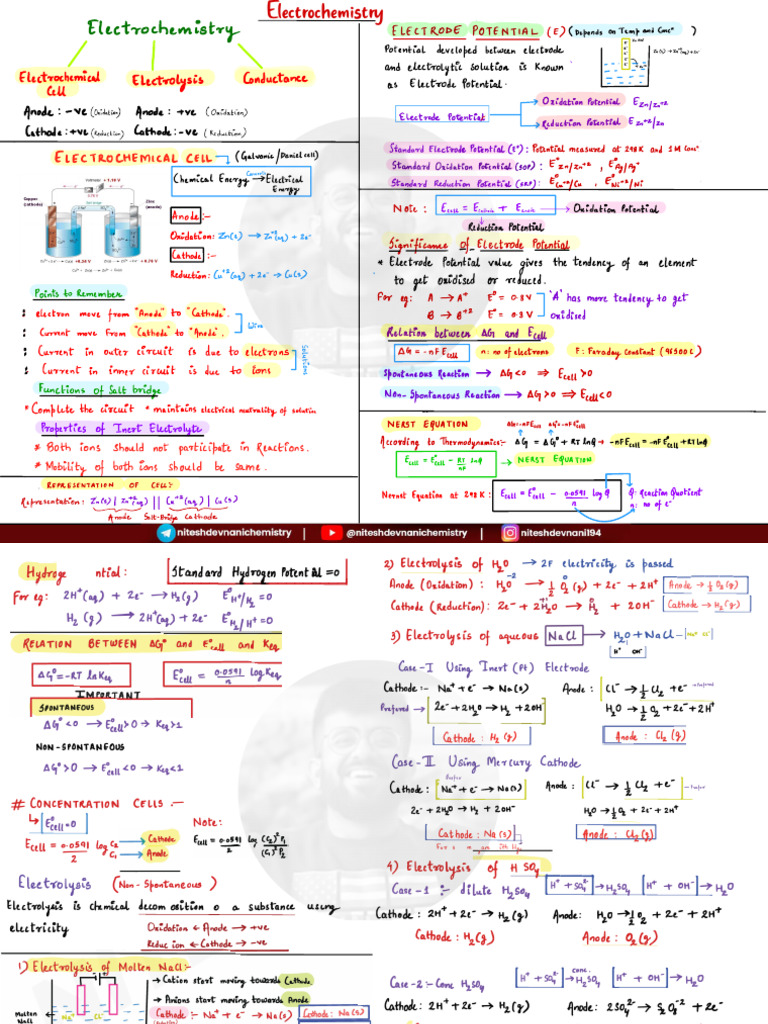 Electrochemistry
Electrochemistry
Electrochemical Cell
Electrolysis
Conductance
Anode : -ve (Oxidation)
Anode : +ve (Oxidation)
Cathode : +ve (Reduction)
Cathode : -ve (Reduction)
ELECTROCHEMICAL CELL → (Galvonic/Daniel cell)
Chemical Energy → Electrical Energy
Copper (cathode)
Zinc (anode)
Anode :-
Oxidation: Zn(s) → Zn+2(aq) + 2e-
Cathode :-
Reduction: Cu+2(aq) + 2e- → Cu(s)
Points to Remember
: electron move from "Anode" to "Cathode".
: Current move From "Cathode" to "Anode".
Wire
: Current in outer circuit is due to electrons
: Current in inner circuit is due to ions
Solutions
Functions of Salt bridge
* Complete the circuit * maintains electrical neutrality of solution
Properties of Inert Electrolyte
* Both ions should not participate in Reactions.
* Mobility of both ions should be same.
REPRESENTATION OF CELL:
Representation: Zn(s) | Zn+2(aq) || Cu+2(aq) | Cu(s)
Anode Salt-Bridge Cathode
ELECTRODE POTENTIAL (E) (Depends on Temp and Conc^n)
Potential developed between electrode
and electrolytic solution is Known
as Electrode Potential.
Electrode Potential
Oxidation Potential E Zn/Zn+2
Reduction Potential E Zn+2/Zn
Standard Electrode Potential (E°): Potential measured at 298K and 1M Conc^n
Standard Oxidation Potential (SOP): E°Zn/Zn+2 , E°Ag/Ag+
Standard Reduction Potential (SRP): E°Cu+2/Cu , E°Ni+2/Ni
Note : Ecell = Ecathode + Eanode → Oxidation Potential
Reduction Potential
Significance of Electrode Potential
* Electrode Potential value gives the tendency of an element
to get oxidised or reduced.
For eg: A → A+ E° = 0.8V 'A' has more tendency to get
B → B+2 E° = 0.3V oxidised
Relation between ΔG and Ecell
ΔG = -nFEcell n: no of electrons F: Faraday Constant (96500C)
Spontaneous Reaction → ΔG<0 ⇒ Ecell>0
Non-Spontaneous Reaction → ΔG>0 ⇒ Ecell<0
NERST EQUATION ΔG=-nFEcell ΔG°=-nFE°cell
According to Thermodynamics:- ΔG = ΔG° + RT lnQ → -nFEcell = -nFE°cell + RT lnQ
Ecell = E°cell - RT/nF lnQ → NERST EQUATION
Nernst Equation at 298K: Ecell = E°cell - 0.0591/n log Q
Q: Reaction Quotient
n: no of e-
niteshdevnanichemistry | @niteshdevnanichemistry | niteshdevnani194
Hydroge ntial: Standard Hydrogen Potential = 0
For eg: 2H+(aq) + 2e- → H2(g) E°H+/H2 = 0
H2(g) → 2H+(aq) + 2e- E°H2/H+ = 0
RELATION BETWEEN ΔG° and E°cell and Keq
ΔG° = -RT lnKeq
E°cell = 0.0591/n log Keq
IMPORTANT
SPONTANEOUS
ΔG°<0 → E°cell>0 → Keq>1
NON-SPONTANEOUS
ΔG°>0 → E°cell<0 → Keq<1
# CONCENTRATION CELLS :-
E°cell = 0
Ecell = 0.0591/2 log C2/C1 → Cathode
→ Anode
Note:
Ecell = 0.0591/2 log (C2)²P1/(C1)²P2
Electrolysis (Non-Spontaneous)
Electrolysis is chemical decomposition o a substance using
electricity
Oxidation ← Anode → +ve
Reduc ion ← Cathode → -ve
1) Electrolysis of Molten NaCl:-
→ Cation start moving towards Cathode.
→ Anions start moving towards Anode
Cathode :- Na+ + e- → Na(s) Cathode: Na(s)
Molten NaCl
Na+ Cl-
2) Electrolysis of H2O → 2F electricity is passed
Anode (Oxidation) : H2O → ½ O2(g) + 2e- + 2H+ Anode → ½ O2(g)
Cathode (Reduction): 2e- + 2H2O → H2 + 2OH- Cathode → H2(g)
3) Electrolysis of aqueous NaCl → H2O + NaCl - Na+ Cl-
H+ OH-
Case-I Using Inert (Pt) Electrode
Cathode :- Na+ + e- → Na(s) Anode : Cl- → ½ Cl2 + e-
Prefered → 2e- + 2H2O → H2 + 2OH- H2O → ½ O2 + 2e- + 2H+
Cathode : H2(g) Anode : Cl2(g)
Case-II Using Mercury Cathode
Cathode : Na+ + e- → Na(s) Anode : Cl- → ½ Cl2 + e-
2e- + 2H2O → H2 + 2OH- H2O → ½ O2 + 2e- + 2H+
Cathode : Na(s) Anode : Cl2(g)
4) Electrolysis of H SO4
Case-1 :- dilute H2SO4 H+ + SO4²- → H2SO4 H+ + OH- → H2O
Cathode : 2H+ + 2e- → H2(g) Anode: H2O → ½ O2 + 2e- + 2H+
Cathode: H2(g) Anode: O2(g)
Case-2 :- Conc H2SO4 H+ + SO4²- conc. → H2SO4 H+ + OH- → H2O
Cathode: 2H+ + 2e- → H2(g) Anode: 2SO4²- → S2O8-2 + 2e-